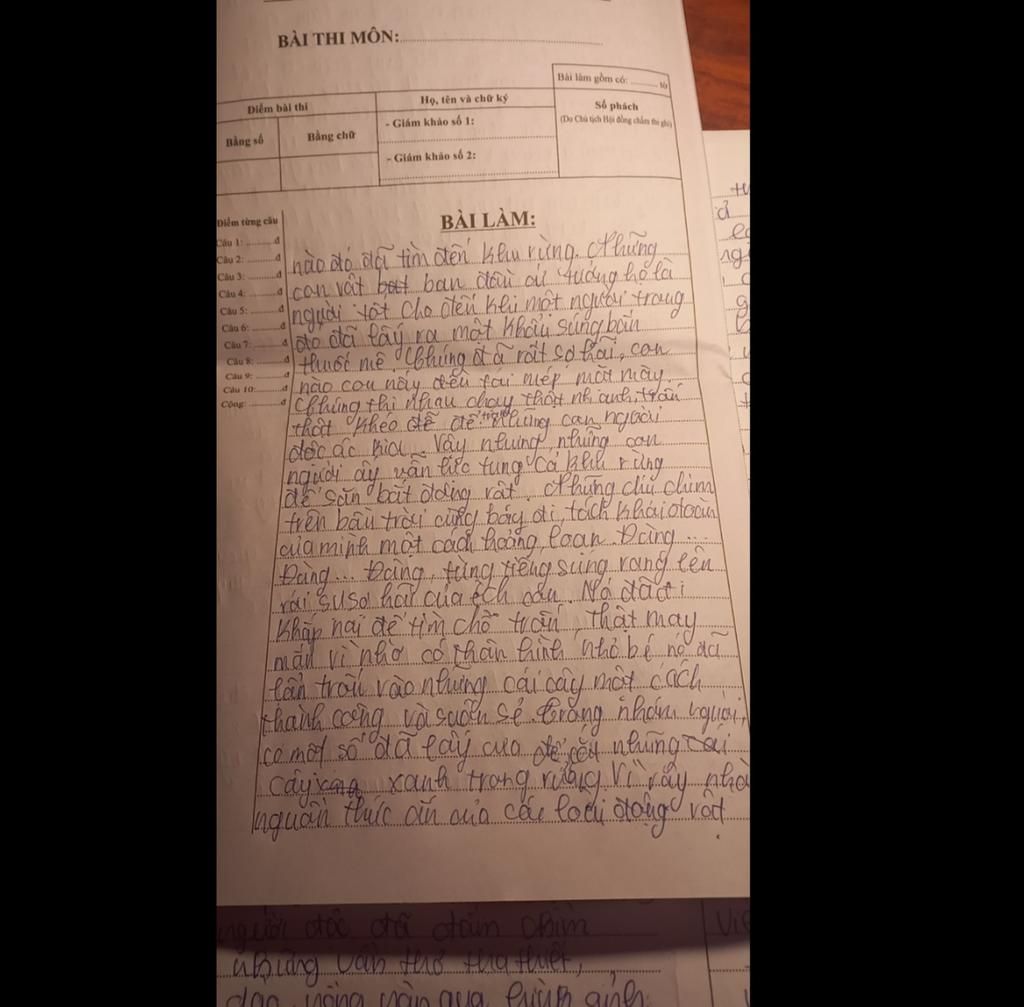 BÀI THI MÔN:
Bài làm gồm có: tờ
Điểm bài thi
Họ, tên và chữ ký
Số phách
(Do Chủ tịch Hội đồng chấm thi ghi)
Bằng số
Bằng chữ
- Giám khảo số 1:
- Giám khảo số 2:
Điểm từng câu
BÀI LÀM:
Câu 1: đ
Câu 2: đ
Câu 3: đ
Câu 4: đ
Câu 5: đ
Câu 6: đ
Câu 7: đ
Câu 8: đ
Câu 9: đ
Câu 10: đ
Cộng: đ
nào đó đã tìm đến khu rừng. Những
con vật ban đầu cứ tưởng họ là
người tốt cho đến khi một người trong
đó đã lấy ra một khẩu súng bắn
thuốc mê. Chúng đã rất sợ hãi, con
nào con nấy đều tái mép mặt mày.
Chúng thi nhau chạy thật nhanh, trốn
thật khéo để để tránh những con người
độc ác kia... Vậy nhưng, những con
người ấy vẫn lục tung cả khu rừng
để săn bắt động vật. Những chú chim
trên bầu trời cũng bay đi, tách khỏi đoàn
của mình một cách hoảng loạn. Đàng...
Đàng... Đàng, từng tiếng súng vang lên
với sự sợ hãi của ếch con. Nó đã đi
khắp nơi để tìm chỗ trốn, thật may
mắn vì nhờ có thân hình nhỏ bé nó đã
lẩn trốn vào những cái cây một cách
thành công và suôn sẻ. Trong nhóm người,
có một số đã lấy cưa để cắt những cái
cây xanh trong rừng. Vì vậy nhà
nguồn thức ăn của các loài động vật
người độc đã đắm chìm
những vần thơ tha thiết,
qua hình ảnh